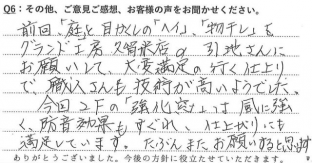 Q6：その他、ご意見ご感想、お客様の声をお聞かせください。
前回、「庭」と目かくしの「ヘイ」、「物干し」を
グランド工房久留米店の引地さんに
お願いして、大変満足の行く仕上り
で、職人さんも技術が高いようでした。
今回2Fの「強化窓」は風に強
く、防音効果もすぐれ、仕上がりにも
満足しています。たぶんまたお願いすると思います
ありがとうございました。今後の方針に役立たせていただきます。